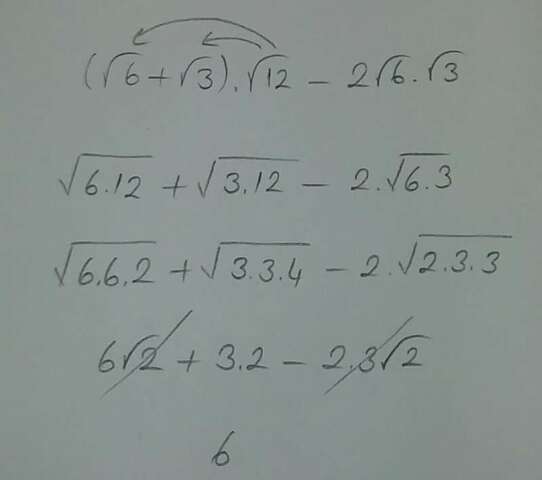 (√6 + √3).√12 - 2√6.√3
√6.12 + √3.12 - 2.√6.3
√6.6.2 + √3.3.4 - 2.√2.3.3
6√2 + 3.2 - 2.3√2
6